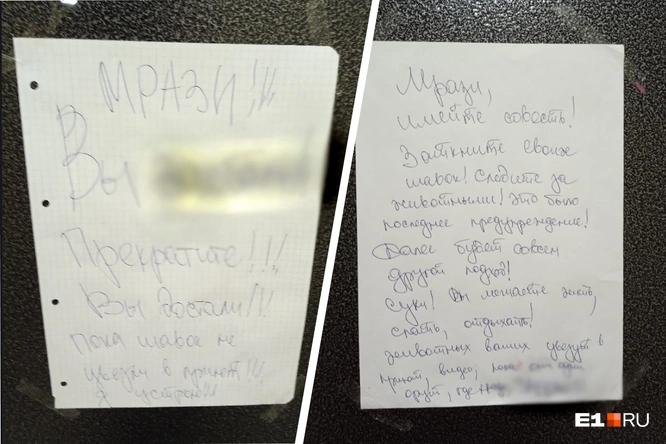 МРАЗИ!!!
Вы
Прекратите!!!
Вы достали!!!
пока шавок не
увезли в приют!!!
Я устрою!!!
Мрази,
имейте совесть!
Заткните своих
шавок! Следите за
животными! Это было
последнее предупреждение!
Далее будет совсем
другой подход!
Суки! Вы мешаете жить,
спать, отдыхать!
животных ваших увезут в
приют, видео, как они
орут, где
E1.RU